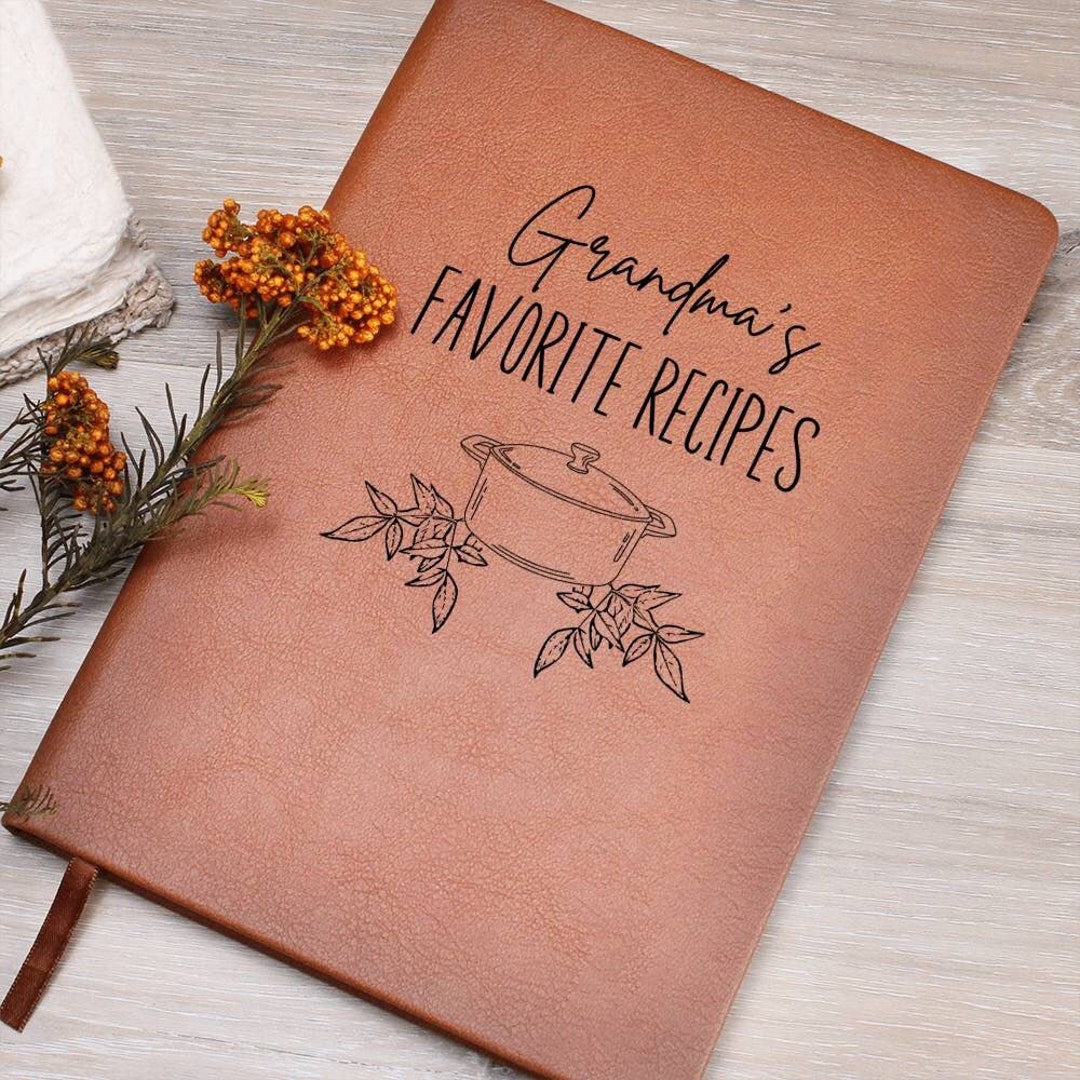 Grandma's
FAVORITE RECIPES